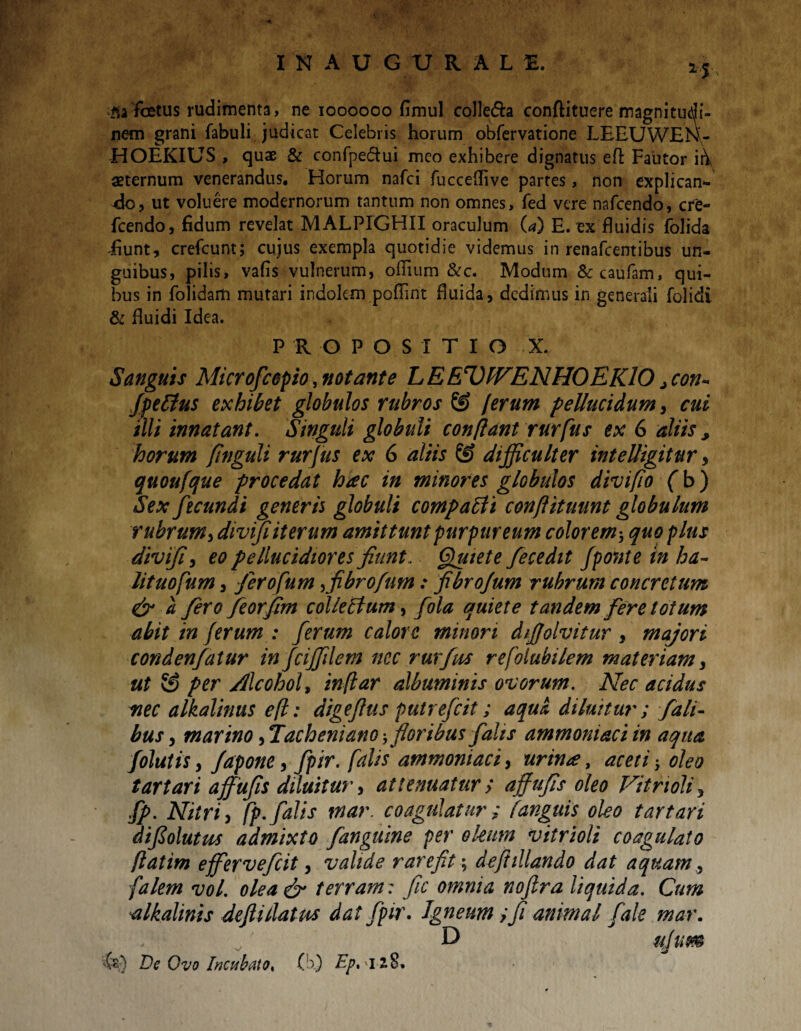 INAUGURALE. 25
na fœtus rudimenta, ne 1000000 ſimul collecta conſtituere magnitudi-
nem grani ſabuli judicat Celebris horum obſervatione LEEUWEN-
HOEKIUS, quæ & conſpectui meo exhibere dignatus eſt Fautor in
æternum venerandus. Horum naſci ſucceſſive partes, non explican-
do, ut voluêre modernorum tantum non omnes, ſed vere naſcendo, cre-
ſcendo, fidum revelat MALPIGHII oraculum (a) E. ex fluidis ſolida
fiunt, creſcunt; cujus exempla quotidie videmus in renaſcentibus un-
guibus, pilis, vaſis vulnerum, oſſium &c. Modum & cauſam, qui-
bus in ſolidam mutari indolem poſſint fluida, dedimus in generali ſolidi
& fluidi Idea.
PROPOSITIO X.
Sanguis Microſcopio, notante LEEVWENHOEKIO, con-
ſpectus exhibet globulos rubros & ſerum pellucidum, cui
illi innatant. Singuli globuli conſtant rurſus ex 6 aliis,
horum ſinguli rurſus ex 6 aliis & difficulter intelligitur,
quouſque procedat hæc in minores globulos diviſio (b)
Sex ſecundi generis globuli compacti conſtituunt globulum
rubrum, diviſi iterum amittunt purpureum colorem; quo plus
diviſi, eo pellucidiores fiunt. Quiete ſecedit ſponte in ha-
lituoſum, ſeroſum, fibroſum: fibroſum rubrum concretum
& à ſero ſeorſim collectum, ſola quiete tandem fere totum
abit in ſerum: ſerum calore minori diſſolvitur, majori
condenſatur in ſciſſilem nec rurſus reſolubilem materiam,
ut & per Alcohol, inſtar albuminis ovorum. Nec acidus
nec alkalinus eſt: digeſtus putreſcit; aquâ diluitur; ſali-
bus, marino, Tacheniano; floribus ſalis ammoniaci in aqua
ſolutis, ſapone, ſpir. ſalis ammoniaci, urinæ, aceti; oleo
tartari affuſis diluitur, attenuatur; affuſis oleo Vitrioli,
ſp. Nitri, ſp. ſalis mar. coagulatur; ſanguis oleo tartari
diſſolutus admixto ſanguine per oleum vitrioli coagulato
ſtatim efferveſcit, valide rarefit; deſtillando dat aquam,
ſalem vol. olea & terram: ſic omnia noſtra liquida. Cum
alkalinis deſtillatus dat ſpir. Igneum; ſi animal ſale mar.
D uſum
(a) De Ovo Incubato. (b) Ep. 128.